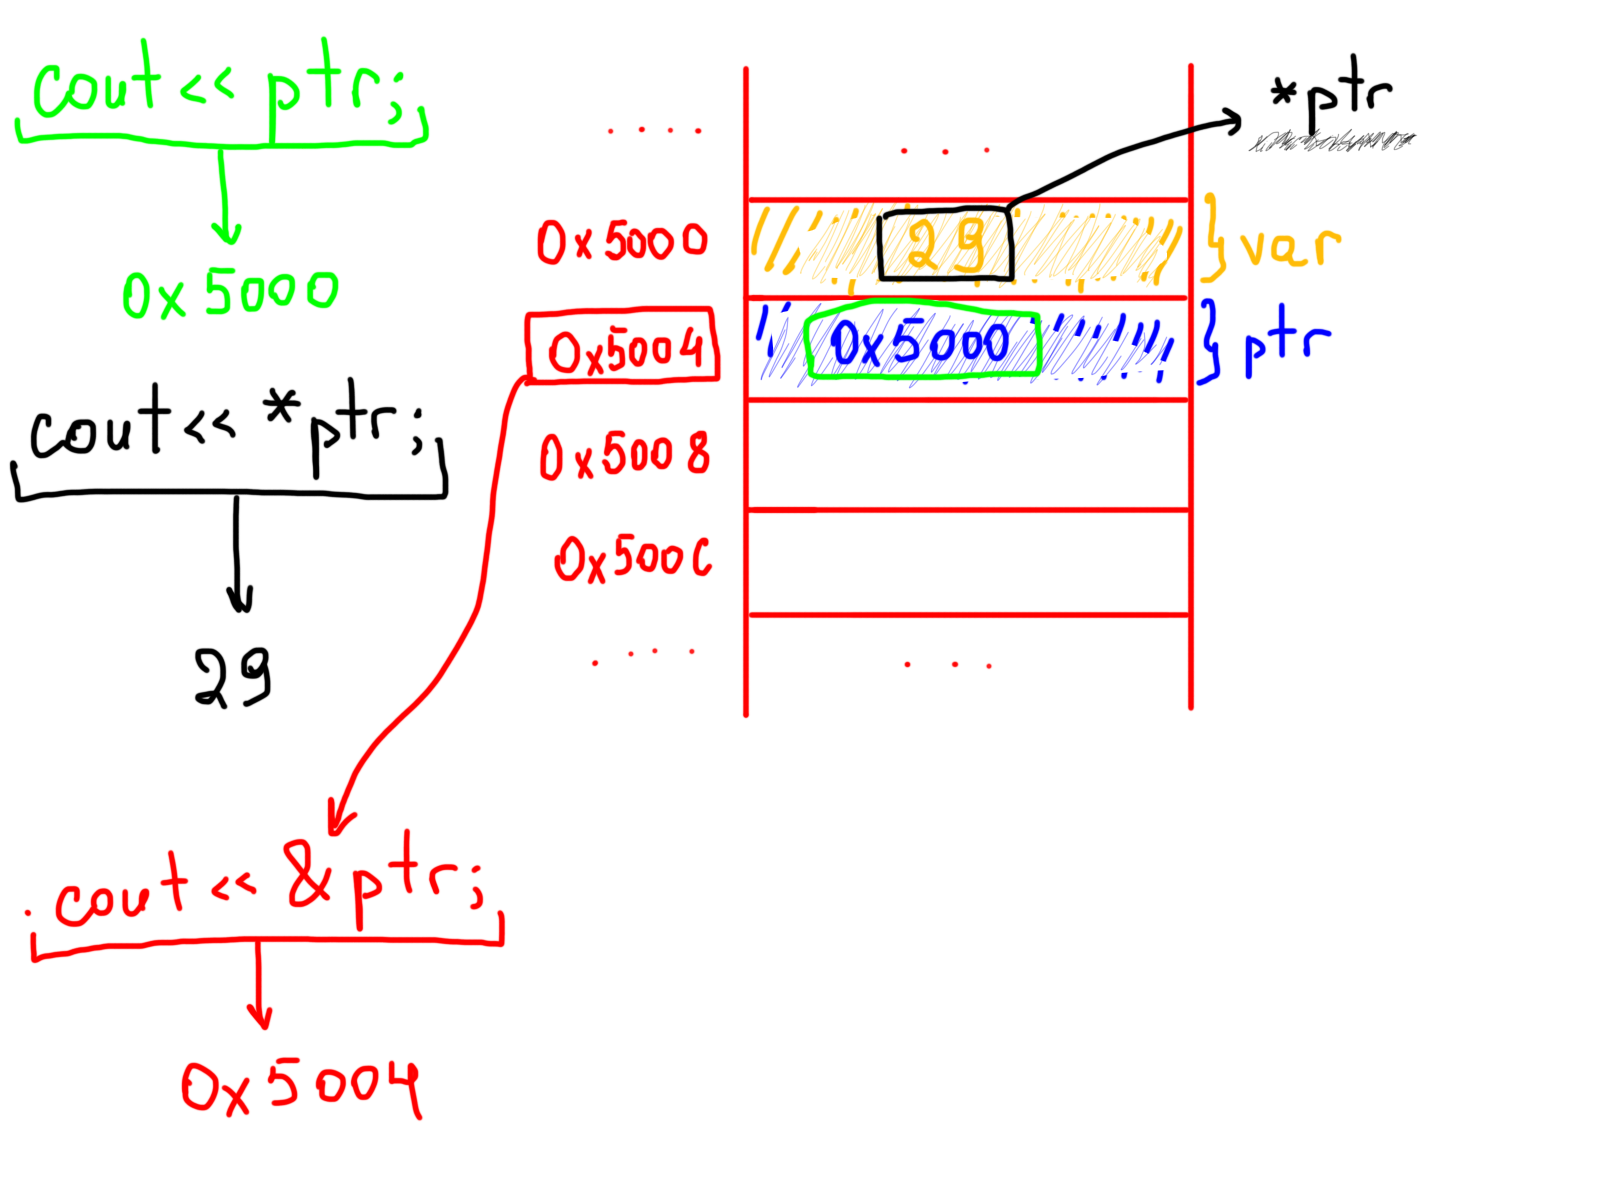 cout << ptr;
0x5000
cout << *ptr;
29
cout << &ptr;
0x5004
....
...
*ptr
0x5000
29
var
0x5004
0x5000
ptr
0x5008
0x500C
....
...